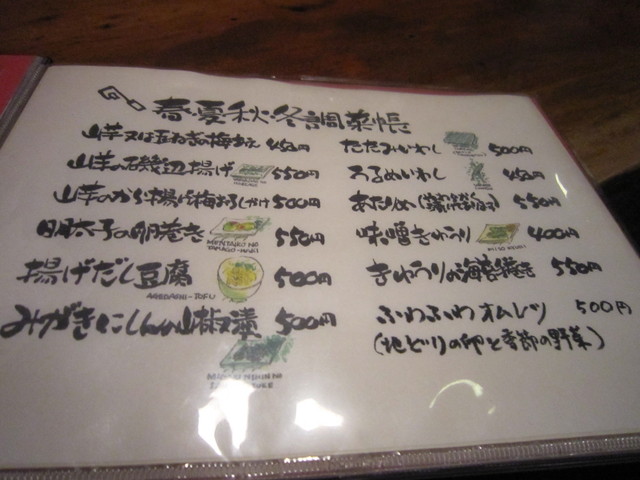 春・夏・秋・冬調菜帳
山芋又は玉ねぎの梅あえ 450円
山芋の磯辺揚げ 550円
山芋のから揚げ梅おろしがけ 500円
明太子の卵巻き 550円
MENTAIKO NO TAMAGO-MAKI
揚げだし豆腐 500円
AGEDASHI-TOFU
みがきにしんの山椒漬 500円
たたみいわし 500円
うるめいわし 450円
あたりめ 550円
味噌きゅうり 400円
MISO KYURI
きゅうりの海苔巻き 550円
ふわふわオムレツ 500円
(地どりの卵と季節の野菜)